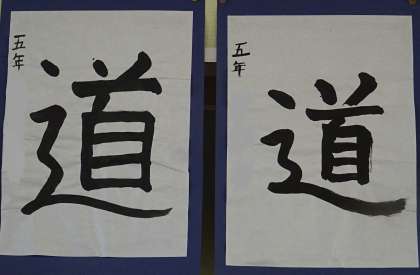 五年
道
五年
道